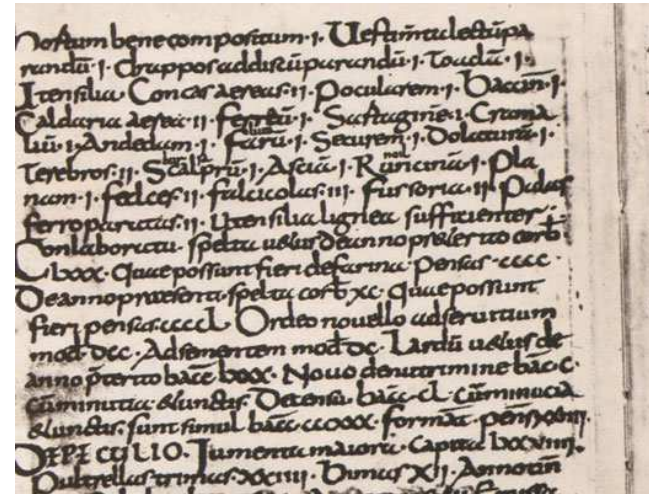 nostrum bene compositum · I · Uestimta lectū pa
randū · I · drappos ad discū parandū · I · Toaclā · I ·
Utensilia · Concas aereas · II · Pocularem · I · Baccin̄ · I ·
Caldaria aerea · II · ferreū · I · Sartaginē · I · Crama
liū · I · Andedam · I · farū · I · Securem · I · Dolaturā · I ·
Terebros · II · Scalprū · I · Asciā · I · Runcinā · I · Pla
nam · I · falces · II · falcicolas · III · fussoria · III · Palas
ferro paratas · II · Utensilia lignea sufficienter ·
Conlaboratu · spelta uetus de anno preterito corb̄
Lxxx · Quae possunt fieri de farina · Pensas · cccc ·
De anno praesenti · spelta corb̄ xc · Quae possunt
fieri pensas · ccccL Ordeo nouello ad seruitium
mod̄ dcc · Ad sementem mod̄ dc · Lardū uetus de
anno p̄terito bacc̄ Lxxx · Novo de nutrimine bac̄ · c ·
cū minutia & unctis · De censu bacc̄ · cL · cū minucia
& unctis · sunt simul bacc̄ cccxxx · format̄ · pens xxiiii ·
DE PECULIO · Iumenta maiora · Capita Lxxviiii ·
Pultrellas trimas · xxiiii · bimas · XII · Annotin̄